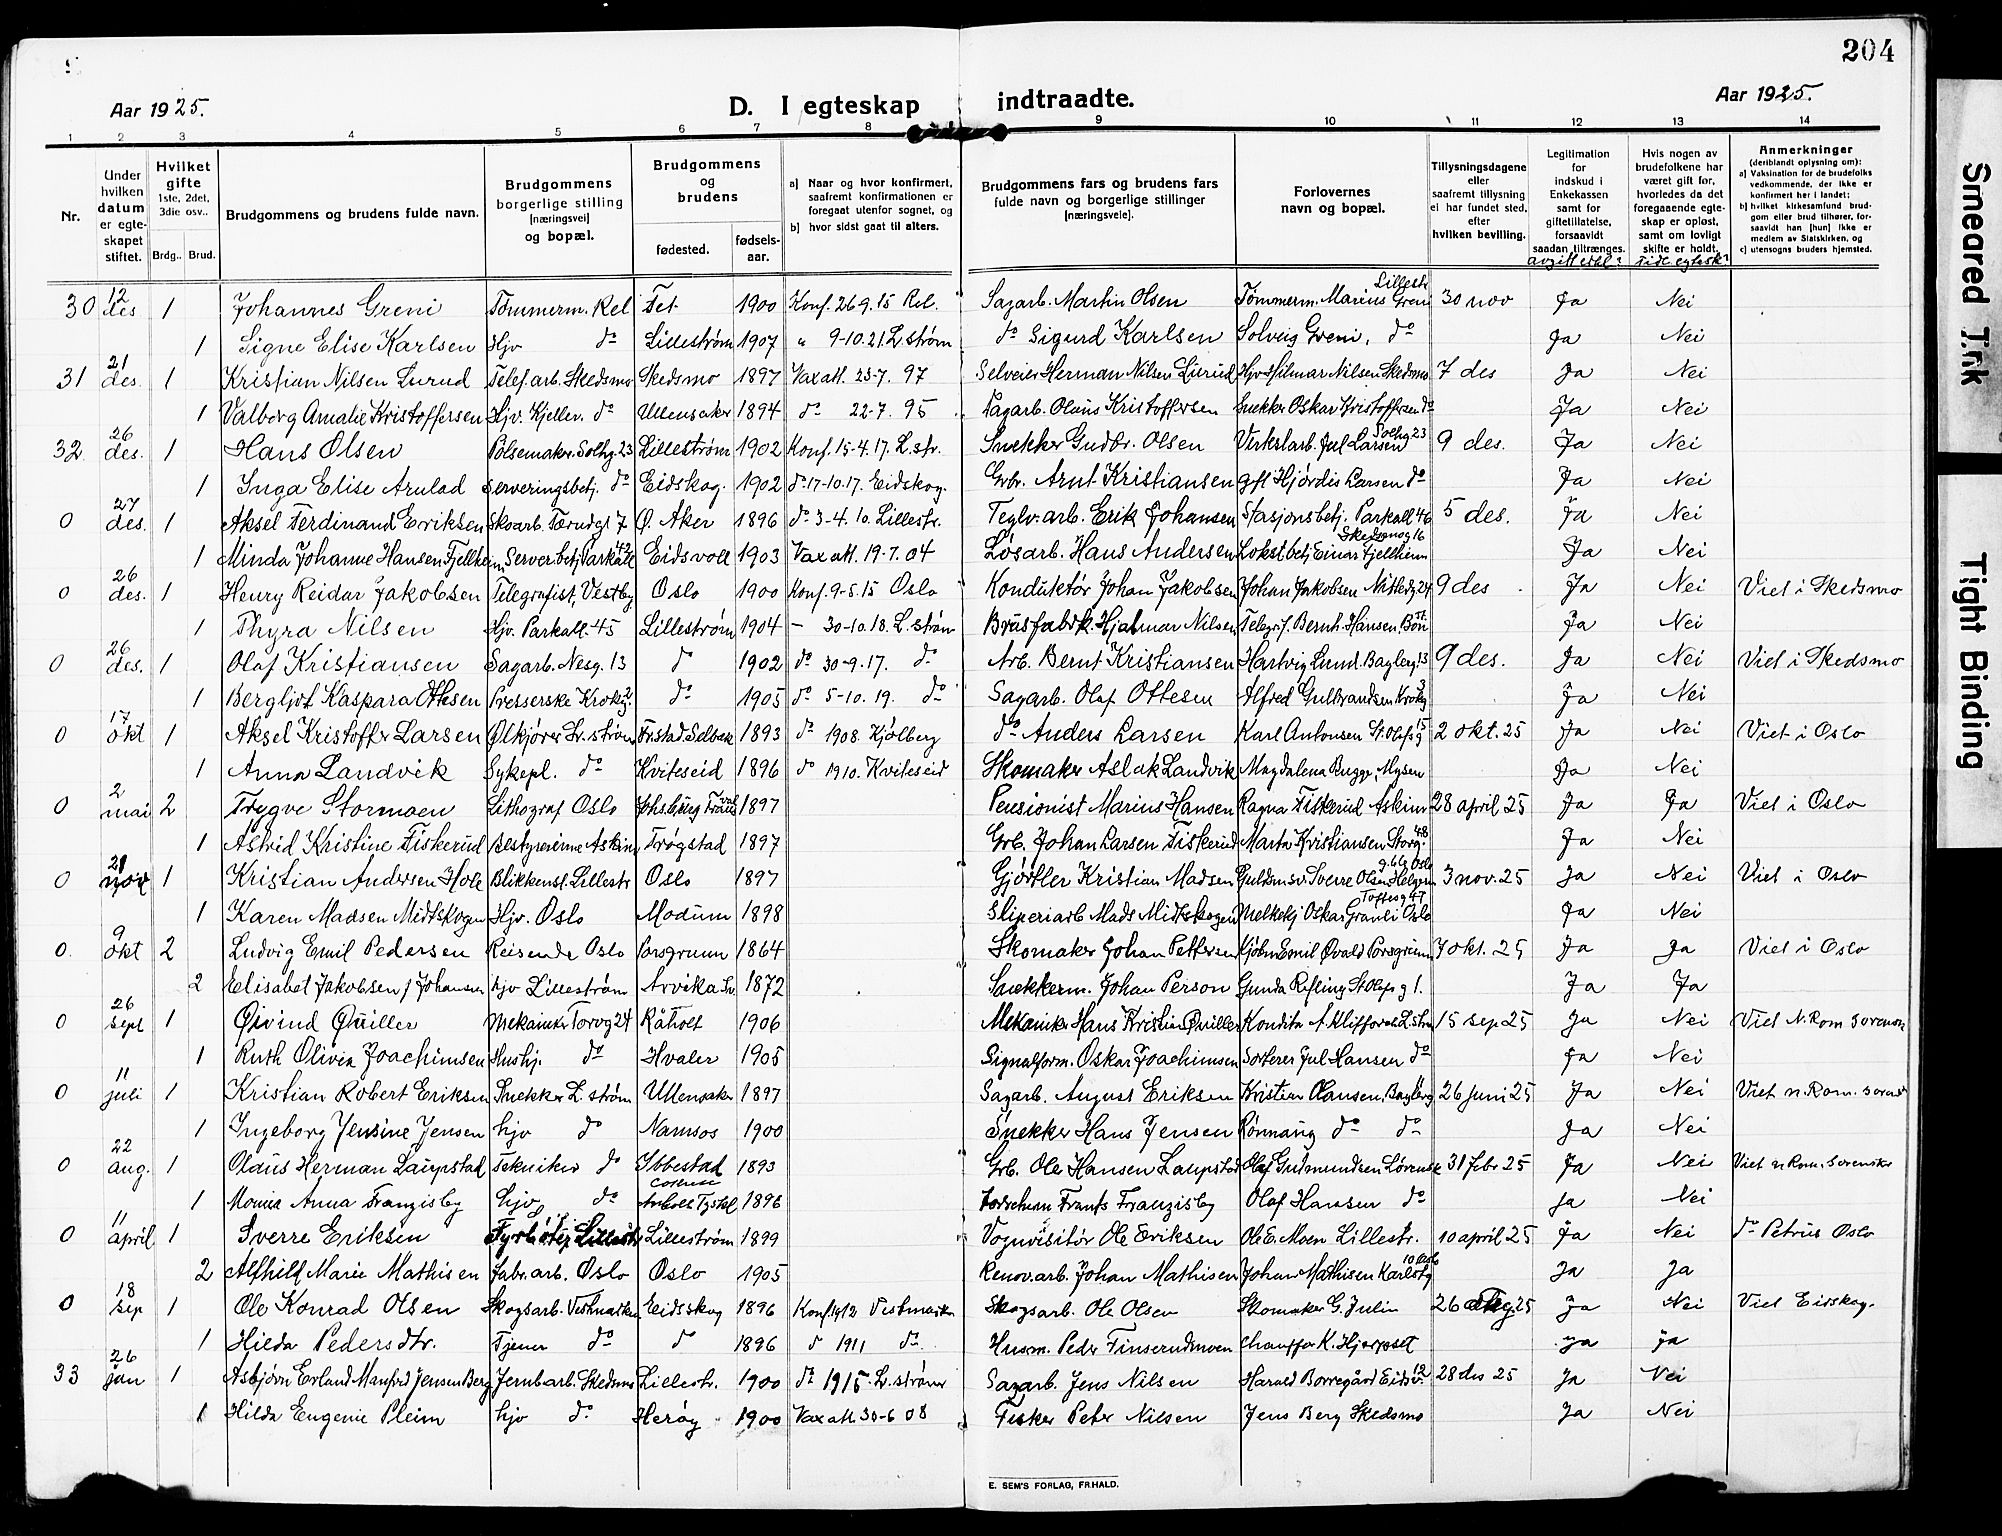 204
Aar 1925.
D. I egteskap indtraadte.
Aar 1925.
1 2 3 4 5 6 7 8 9 10 11 12 13 14
Nr.
Under hvilken datum er egteskapet stiftet.
Hvilket gifte 1ste, 2det, 3die osv..
Brdg.. Brud.
Brudgommens og brudens fulde navn.
Brudgommens borgerlige stilling [næringsvei] og bopæl.
Brudgommens og brudens
fødested. fødselsaar.
a) Naar og hvor konfirmert, saafremt konfirmationen er foregaat utenfor sognet, og
b) hvor sidst gaat til alters.
Brudgommens fars og brudens fars fulde navn og borgerlige stillinger [næringsveie].
Forlovernes navn og bopæl.
Tillysningsdagene eller saafremt tillysning ei har fundet sted, efter hvilken bevilling.
Legitimation for indskud i Enkekassen samt for giftetillatelse, forsaavidt saadan tiltrænges.
Hvis nogen av brudefolkene har været gift før, hvorledes da det foregaaende egteskap er opløst, samt om lovligt skifte er holdt.
Anmerkninger (deriblandt oplysning om):
a) Vaksination for de brudefolks vedkommende, der ikke er konfirmert her i landet:
b) hvilket kirkesamfund brudgom eller brud tilhører, forsaavidt han [hun] ikke er medlem av Statskirken, og
c) utensogns bruders hjemsted.
30 12 des 1 Johannes Greni Tømmerm. Rel Fet 1900 Konf. 26-9.15 Rel. Sagarb. Martin Olsen Tømmerm. Marius Greni Lillestr 30 nov Ja Nei
1 Signe Elise Karlsen Hjv do Lillestrøm 1907 " 9-10.21. L.strøm do Sigurd Karlsen Solveig Greni, do Ja Nei
31 21 des. 1 Kristian Nilsen Lurud Telef.arb. Skedsmo Skedsmo 1897 Vax att. 23-7. 97 Selveier Herman Nilsen Lurud Hjv Hilmar Nilsen Skedsmo 7 des Ja Nei
1 Valborg Amalie Kristoffersen Hjv. Kjeller. do Ullensaker 1894 do 22-7. 95 Sagarb. Olaus Kristoffersen Snekker Oskar Kristoffersen do Ja Nei
32 26 des. 1 Hans Olsen Pølsemaker. Solhg. 23 Lillestrøm 1902 Konf. 15-4.17. L.str. Snekker Gudbr. Olsen Verkstarb. Jul Larsen Solhg 23 9 des. Ja Nei
1 Inga Elise Arulad Serveringsbetj. do Eidskog. 1902 do 17-10.17. Eidskog. Grbr. Arnt Kristiansen gft Hjørdis Larsen do Ja Nei
0 27 des. 1 Aksel Ferdinand Eriksen Skoarb. Tærudgt 7 Ø. Aker 1896 do 3-4.10. Lillestr. Teglv.arb. Erik Johansen Stasjonsbetj. Parkall 46 5 des. Ja Nei
1 Minda Johanne Hansen Fjellheim Server.betj Parkall 42 Eidsvoll 1903 Vax att. 19.7.04 Løsarb. Hans Andersen Lokstbetj Einar Fjellheim Skedsmog 16 Ja Nei
0 26 des. 1 Henry Reidar Jakobsen Telegrafist, Vestby Oslo 1900 Konf. 9-5.15 Oslo Konduktør Johan Jakobsen Johan Jakobsen Nittedg 24 9 des Ja Nei Viet i Skedsmo
1 Thyra Nilsen Hjv. Parkall. 45 Lillestrøm 1904 — 30-10.18. L.strøm Brusfabrk. Hjalmar Nilsen Telegrf. Bernh. Hansen, Bøn Ja Nei
0 26 des. 1 Olaf Kristiansen Sagarb. Nesg. 13 do 1902 do 30-9.17. do Arb. Bernt Kristiansen Hartvig Lund. Bagberg 13 9 des. Ja Nei Viet i Skedsmo
1 Bergljot Kaspara Ottesen Presserske Krokg. 2 do 1905 do 5-10.19. do Sagarb. Olaf Ottesen Alfred Gulbrandsen Krokg 3 Ja Nei
0 17 okt 1 Aksel Kristoffer Larsen Ølkjører Lr.strøm Frstad Selbak 1893 do 1908. Kjølberg do Anders Larsen Karl Antonsen St. Olafsg 15 2 okt. 25 Ja Nei Viet i Oslo
1 Anna Landvik Sykepl. do Kviteseid 1896 do 1910. Kviteseid Skomaker Aslak Landvik Magdalena Bugge, Mysen Ja Nei
0 2 mai 2 Trygve Stormoen Lithograf Oslo Johsburg Transval 1897 Pensionist Marius Hansen Ragna Fiskerud Askim 28 april 25 Ja Ja Viet i Oslo
1 Astrid Kristine Fiskerud Bestyrerinne Askim Trøgstad 1897 Grb. Johan Larsen Fiskerud Marta Kristiansen Storg. 48 Ja Nei
0 21 nov 1 Kristian Andersen Hole Blikkensl. Lillestr Oslo 1897 Gjørtler Kristian Madsen Guldsmsv. Sverre Olsen Helgesen g. 6 b Oslo 3 nov. 25 Ja Nei Viet i Oslo
1 Karen Madsen Midtskogen Hjv. Oslo Modum 1898 Sliperiarb Mads Midtskogen Melkekj Oskar Granli Oslo Toftesg 47 Ja Nei
0. 9 okt 2 Ludvig Emil Pedersen Reisende Oslo Porsgrunn 1864 Skomaker Johan Pettersen Kjøbm Emil Øvald Porsgrunn 7 okt. 25 Ja Ja Viet i Oslo
2 Elisabet Jakobsen f Johansen hjv Lillestrøm Arvika Sv. 1872 Snekkerm. Johan Person Gunda Refling St Olafs g 1. Ja Ja
0 26 sept 1 Øivind Qviller Mekaniker Torvg 24 Råholt 1906 Mekaniker Hans Kristian Qviller Kondita A. Klifforth L.strøm 15 sep 25 Ja Nei Viet N. Rom sorensk
1 Ruth Olivia Joachimsen Hushj. do Hvaler 1905 Signalform. Oskar Joachimsen Sorterer Jul Hansen do Ja Nei
0 11 juli 1 Kristian Robert Eriksen Snekker L.strøm Ullensaker 1897 Sagarb. August Eriksen Kristian Hansen, Bagberg 26 juni 25 Ja Nei Viet n. Rom. sorensk
1 Ingeborg Jensine Jensen hjv do Namsos 1900 Snekker Hans Jensen Rønnaug do do Ja Nei
0 22 aug. 1 Olaus Herman Laupstad Tekniker do Ibbestad 1893 Grb. Ole Hansen Laupstad Olaf Gudmundsen Lørensk 31 febr 25 Ja Nei Viet n Rom. sorensker
1 Monica Anna Franzisby hjv do 1896 Frants Franzisby Olaf Hansen do Ja Nei
0 11 april 1 Sverre Eriksen Fyrbøter Lillestr Lillestrøm 1899 Vognvisitør Ole Eriksen Ole E. Moen Lillestr. 10 april 25 Ja Nei do Petrus Oslo
2 Alfhild Marie Mathisen Fabr.arb. Oslo Oslo 1905 Renov.arb. Johan Mathisen Johan Mathisen Karlstg 10 Oslo Ja Ja
0 18 sep 1 Ole Konrad Olsen Skogsarb. Vestmarken Eidskog 1896 Konf. 1912 Vestmarken Skogsarb. Ole Olsen Skomaker G. Julin 26 aug. 25 Ja Nei Viet Eidskog.
1 Hilda Pedersdtr. Tjener do do 1896 do 1911 do Husm. Peder Finserudmoen Chauffør K. Hjerpset Ja Ja
33 26 jan 1 Asbjørn Erland Manfrd Jensen Berg Jernb.arb. Skedsmo Lillestr. 1900 do 1915. L.strøm Sagarb. Jens Nilsen Harald Borregård Eidsv. 12 28 des 25 Ja Nei
1 Hilda Eugenie Pleim hjv do Herøy 1900 Vax att 30-6 08 Fisker Peter Nilsen Jens Berg Skedsmo Ja Nei
E. SEM'S FORLAG, FR.HALD.
Smeared Ink
Tight Binding